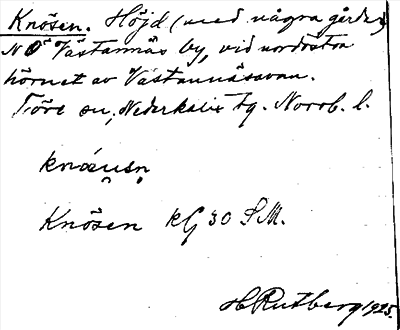 Knösen. Höjd (med några gårdar)
N O Västannäs by, vid nordöstra
hörnet av Västannäsavan.
Töre sn, Nederkalix tg. Norrb. l.
knösen kG 30 S.M.
H Rutberg 1925.